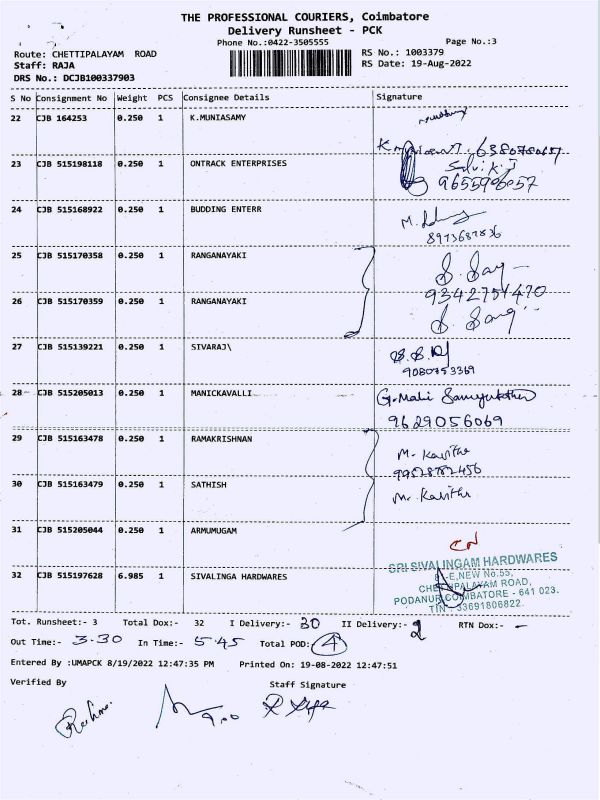 THE PROFESSIONAL COURIERS, Coimbatore
Delivery Runsheet - PCK
Phone No.:0422-3505555 Page No.:3
Route: CHETTIPALAYAM ROAD RS No.: 1003379
Staff: RAJA RS Date: 19-Aug-2022
DRS No.: DCJB100337903
S No Consignment No Weight PCS Consignee Details Signature
22 CJB 164253 0.250 1 K.MUNIASAMY
23 CJB 515198118 0.250 1 ONTRACK ENTERPRISES
24 CJB 515168922 0.250 1 BUDDING ENTERR
8973687836
25 CJB 515170358 0.250 1 RANGANAYAKI
9342751470
26 CJB 515170359 0.250 1 RANGANAYAKI
27 CJB 515139221 0.250 1 SIVARAJ\
9080753369
28 CJB 515205013 0.250 1 MANICKAVALLI
9629056069
29 CJB 515163478 0.250 1 RAMAKRISHNAN M. Kavitha
30 CJB 515163479 0.250 1 SATHISH M. Kavitha
31 CJB 515205044 0.250 1 ARMUMUGAM
CN
SRI SIVALINGAM HARDWARES
NEW No.55,
32 CJB 515197628 6.985 1 SIVALINGA HARDWARES CHETTIPALAYAM ROAD,
PODANUR, COIMBATORE - 641 023.
TIN : 33691806822
Tot. Runsheet:- 3 Total Dox:- 32 I Delivery:- 30 II Delivery:- 2 RTN Dox:- -
Out Time:- 3.30 In Time:- 5.45 Total POD: 4
Entered By :UMAPCK 8/19/2022 12:47:35 PM Printed On: 19-08-2022 12:47:51
Verified By Staff Signature
9.00